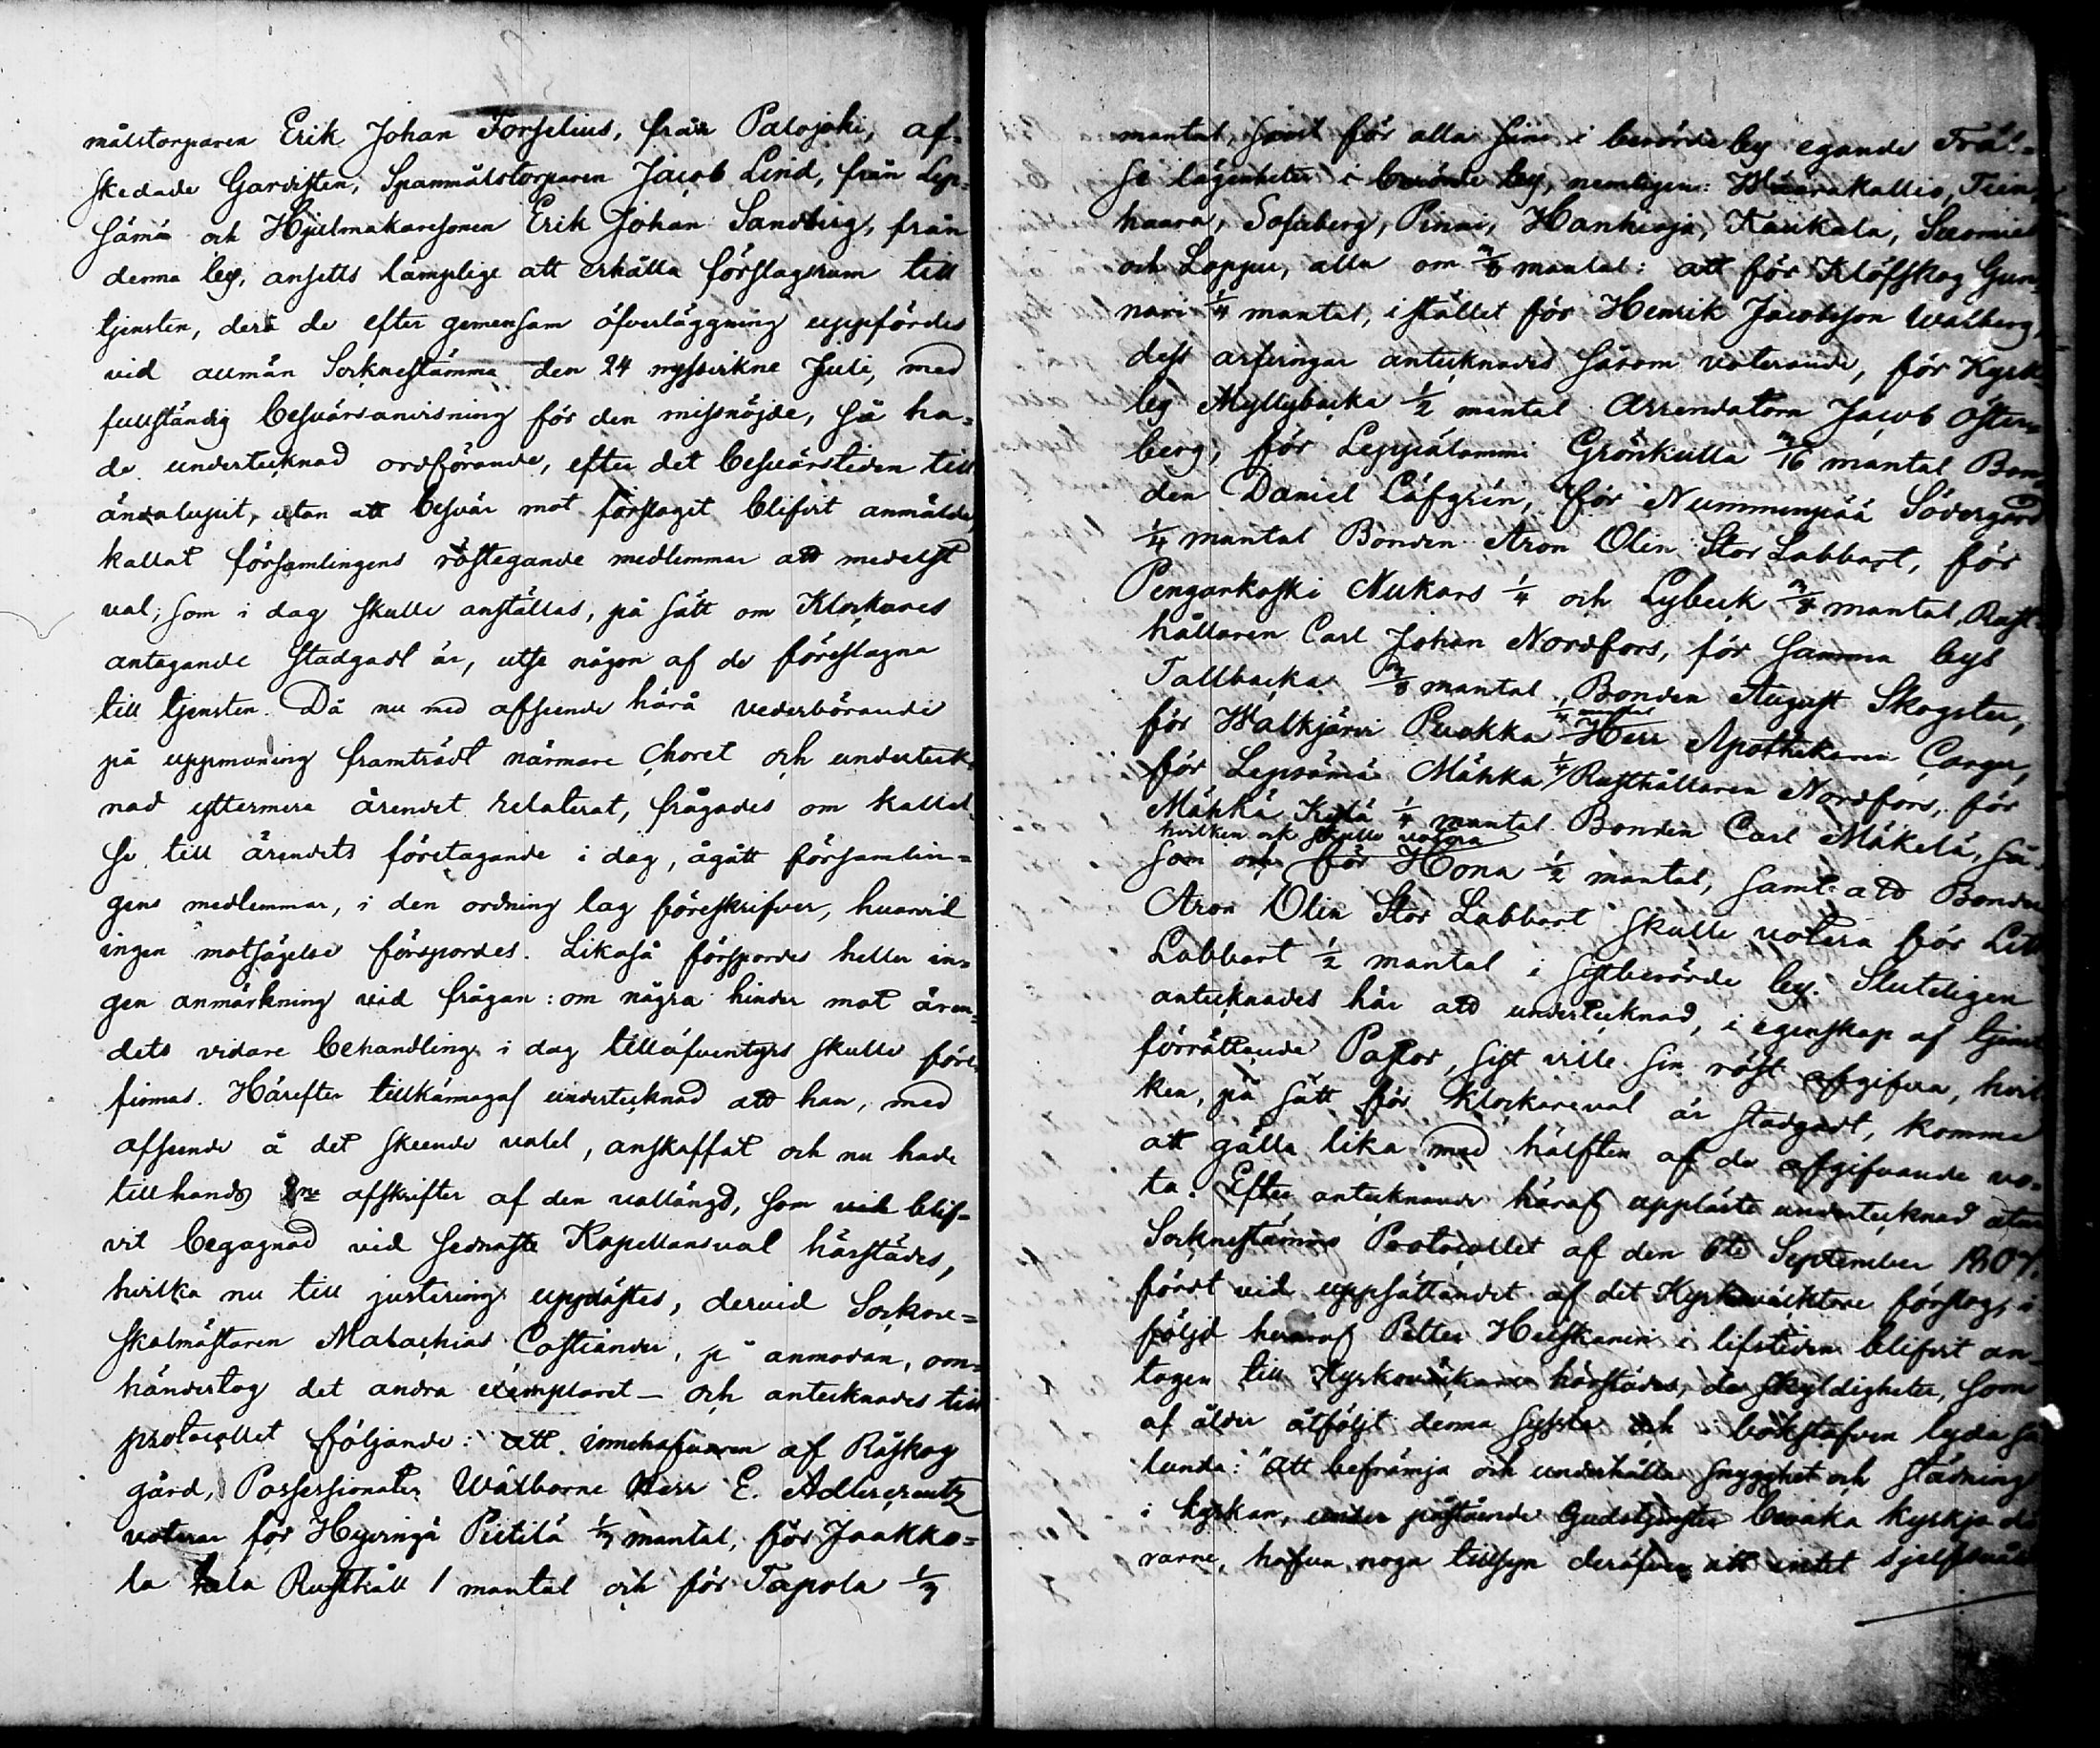 målstorparen Erik Johan Forselius, från Palojoki, af-
skedade Gardisten, Spannmålstorparen Jacob Lind, från Lep-
sämä och Hjulmakaresonen Erik Johan Sandberg, från
denna by, ansetts lämplige att erhålla förslagsrum till
tjensten, dera de efter gemensam öfverläggning uppfördes
vid allmän Socknestämma den 24 nyssvikne Juli, med
fullständig besvärsanvisning för den missnöjde, så ha-
de undertecknad ordförande, efter det besvärstiden till
ändalupit, utan att besvär mot förslaget blifvit anmälde,
kallat församlingens röstegande medlemmar att medelst
val, som i dag skulle anställas, på sätt om Klockares
antagande stadgadt är, utse någon af de föreslagna
till tjensten. Då nu med afseende härå vederbörande
på uppmaning framträdt närmare Choret och underteck-
nad yttermera ärendet relaterat, frågades om kallel-
se till ärendets företagande i dag, ågått församlin-
gens medlemmar, i den ordning lag föreskrifver, hvarvid
ingen motsägelse försports. Likaså försports heller in-
gen anmärkning vid frågan: om några hinder mot ären-
dets vidare behandling i dag tilläfventyrs skulle före
finnas. Härefter tillkännagaf undertecknad att han, med
afseende å det skeende valet, anskaffat och nu hade
tillhands 2ne afskrifter af den vallängd, som blif-
vit begagnad vid sednaste Kapellansval härstädes,
hvilka nu till justering upplästes, dervid Sockne-
skolmästaren Malachias Costiander, på anmodan, om-
händertog det andra exemplaret – och antecknades till
protocollet följande: att innehafvaren af Råskog
gård, Possessionaten Wälborne Herr E. Adlercreutz
voterar för Hyvingä Pietilä 1/3 mantal, för Jaakko-
la Rusthåll 1 mantal och för Tapola 1/3
mantal, samt för alla sine i berörde by egande Fräl-
se lägenheter i berörde by, nemligen: Waarakallio, Tien
haara, Sofieberg, Pinai, Hankioja, Kaukala, Suomies
och Loppu, alla om 3/8 mantal: att för Klöfskog Gun-
nari 1/4 mantal, i stället för Henrik Jacobsson Walberg,
dess arfvingar antecknades såsom voterande, för Kyrk-
by Myllybacka 1/2 mantal Arrendatorn Jacob Östen-
berg, för Leppälammi Grönkulla 3/16 mantal Bon-
den Daniel Löfgrén, för Nummenpää Södergård
1/4 mantal Bonden Aron Olin Stor Labbart, för
Pengarkoski Nukars 1/4 och Lybeck 3/8 mantal, Rust-
hållaren Carl Johan Nordfors, för samma bys
Tallbacka 3/8 mantal, Bonden August Skogster,
för Walkjärvi Puokka 1/4 mantal Herr Apothekaren Canger,
för Lepsämä Mähkä 1/4 Rusthållaren Nordfors, för
Mähkä Kylä 1/4 mantal Bonden Carl Mäkelä, så-
hvilken ock skulle votera
som och för Hona 1/2 mantal, samt att Bonden
Aron Olin Stor Labbart skulle votera för Lill
Labbart 1/2 mantal i sistberörde by. Slutligen
antecknades här att undertecknad, i egenskap af tjenst
förrättande Pastor, sist ville sin röst afgifva, hvil
ken, på sätt för Klockareval är stadgadt, komme
att gälla lika med hälften af de afgifvande vo-
ta. Efter antecknande häraf uppläste undertecknad
Sockenstämmo Protocollet af den 6te September 1807,
fördt vid uppsättandet af det Kyrkoväktare förslag, i
följd hvaraf Petter Helskanen i lifstiden blifvit an-
tagen till Kyrkoväktare härstädes, de skyldigheter, som
af ålder åtföljt denna syssla och i bokstafven lyda så
lunda: "Att befrämja och underhålla snygghet och städning
i kyrkan, under påstående Gudstjenster bevaka kyrkjo dö
rarne, hafva noga tillsyn deröfver att intet sjelfsvåld